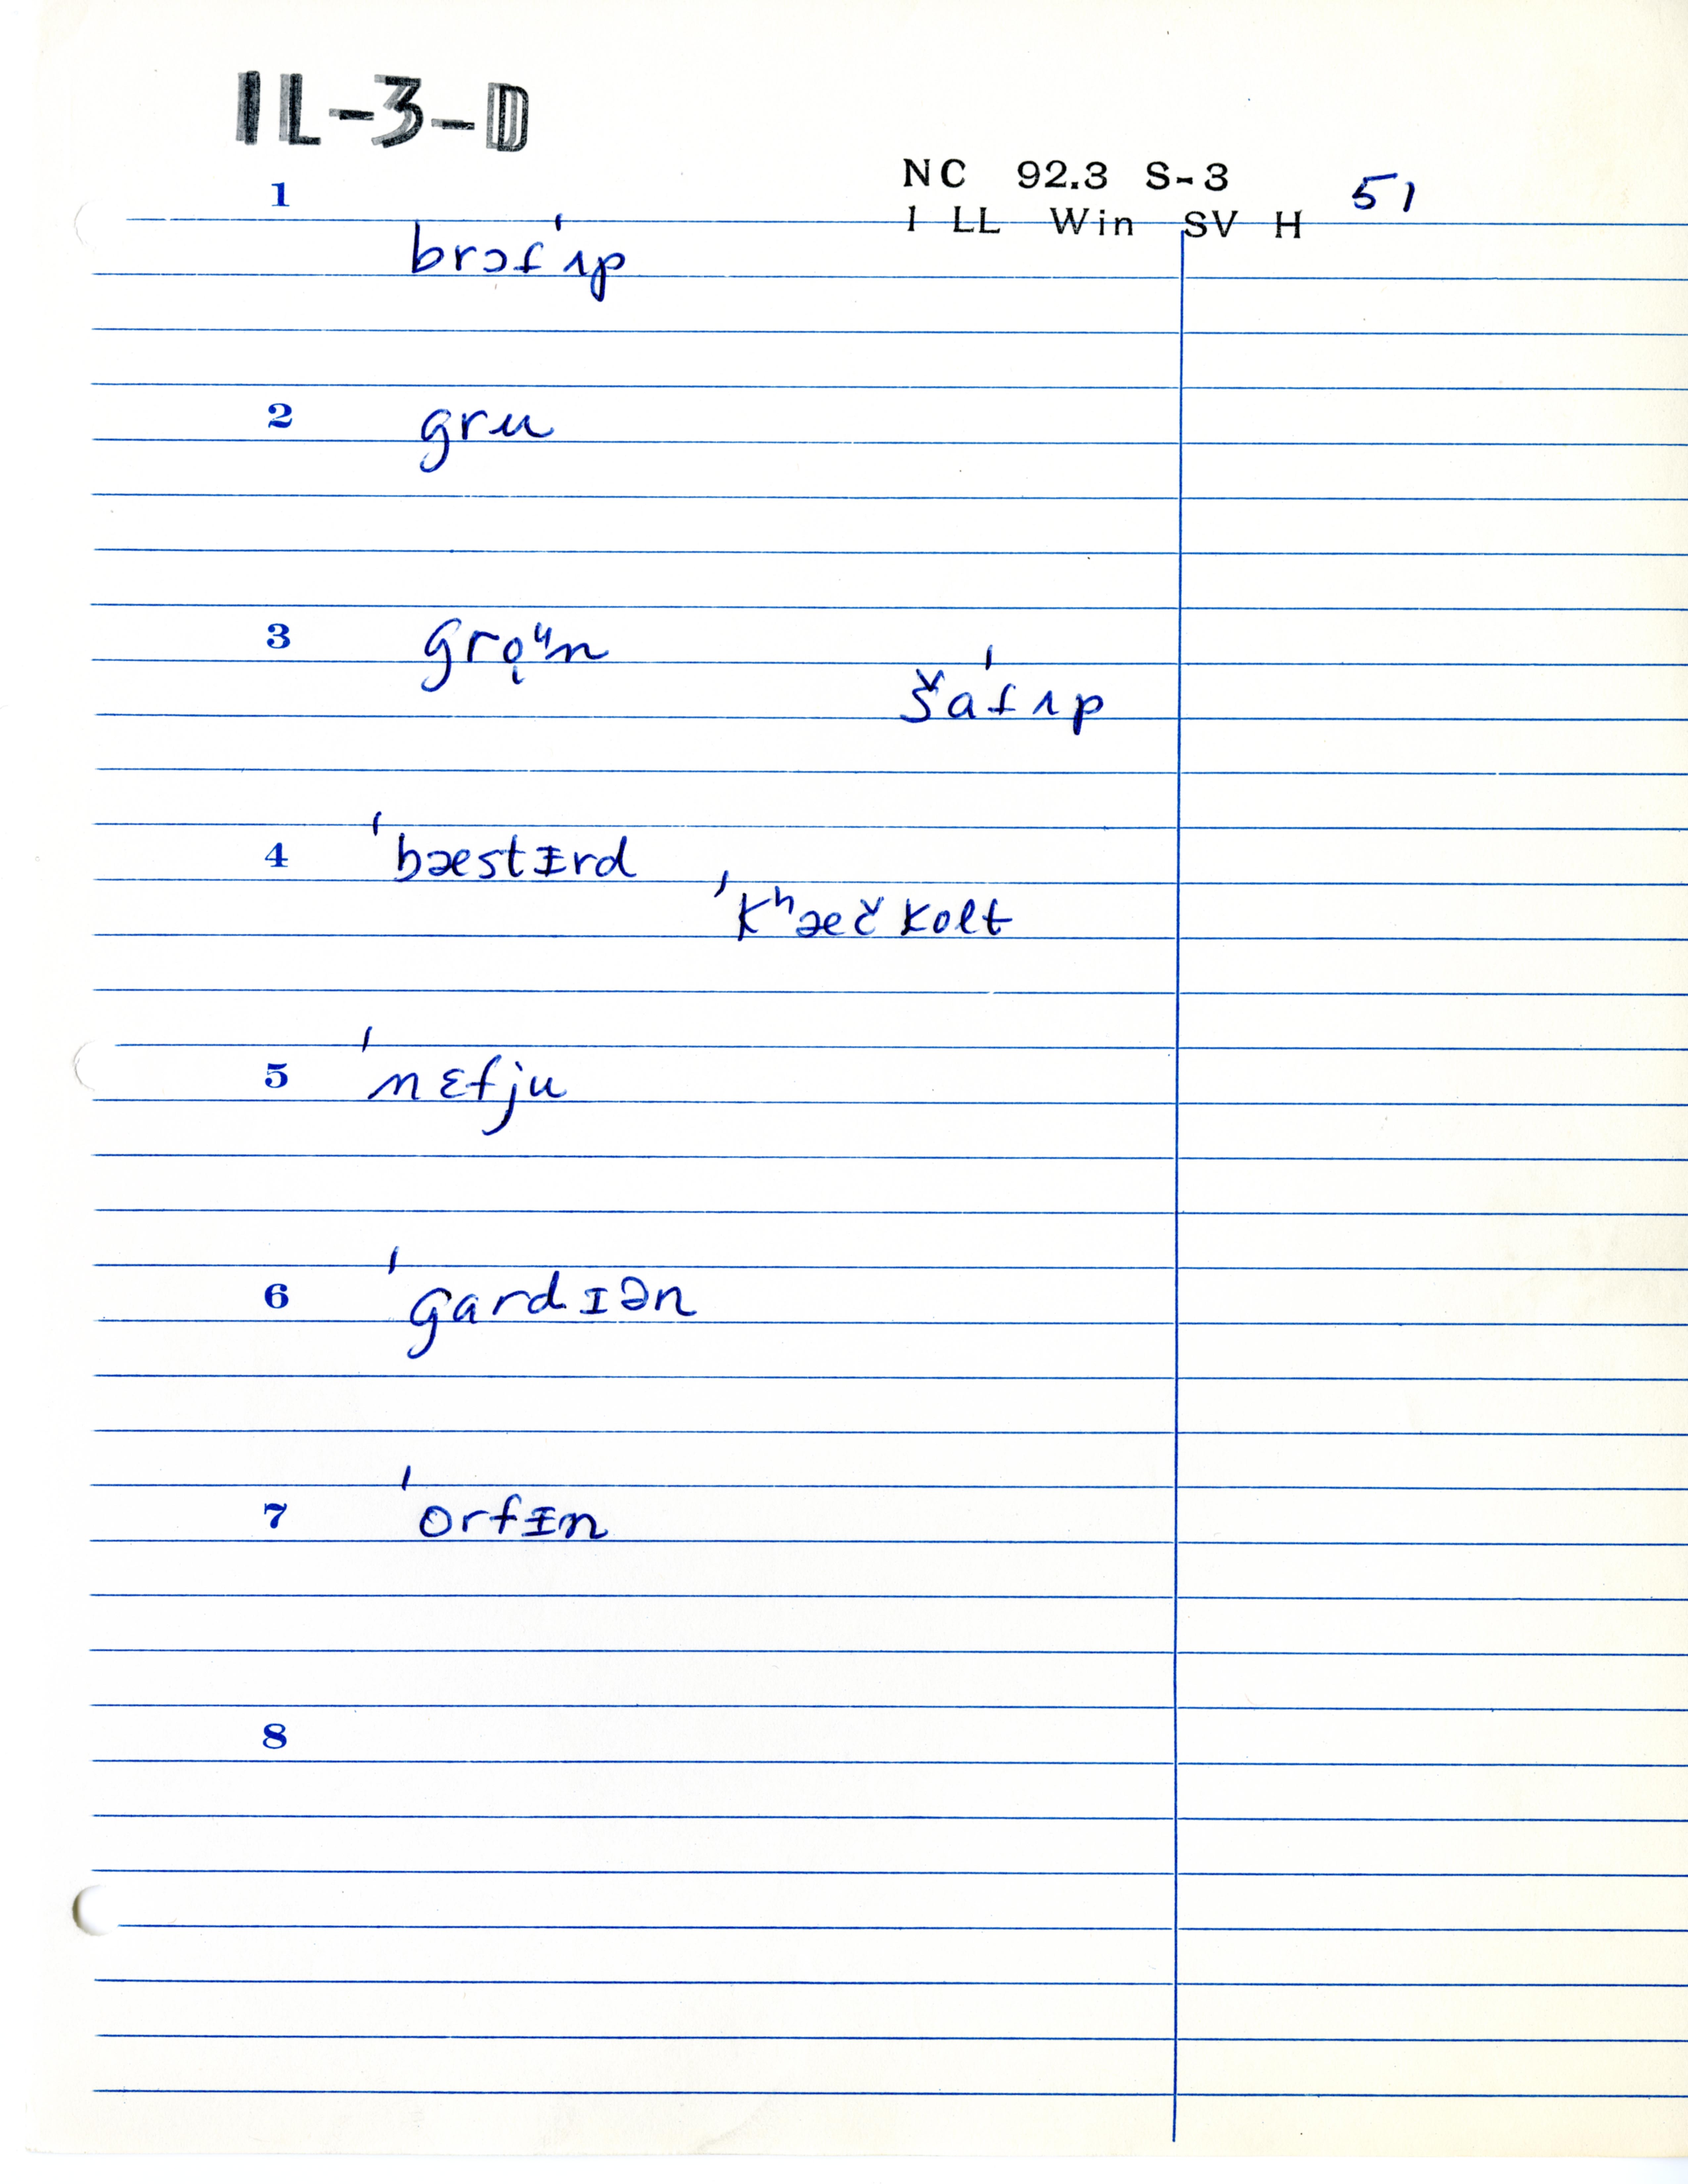 IL-3-D
NC 92.3 S-3 51
1 LL Win SV H
1 brɔfˈʌp
2 gru
3 grǫᶣn
šafˈʌp
4 ˈbæstᵻrd
ˈkʰæčkolt
5 ˈnɛfju
6 ˈgardɪən
7 ˈorfᵻn
8